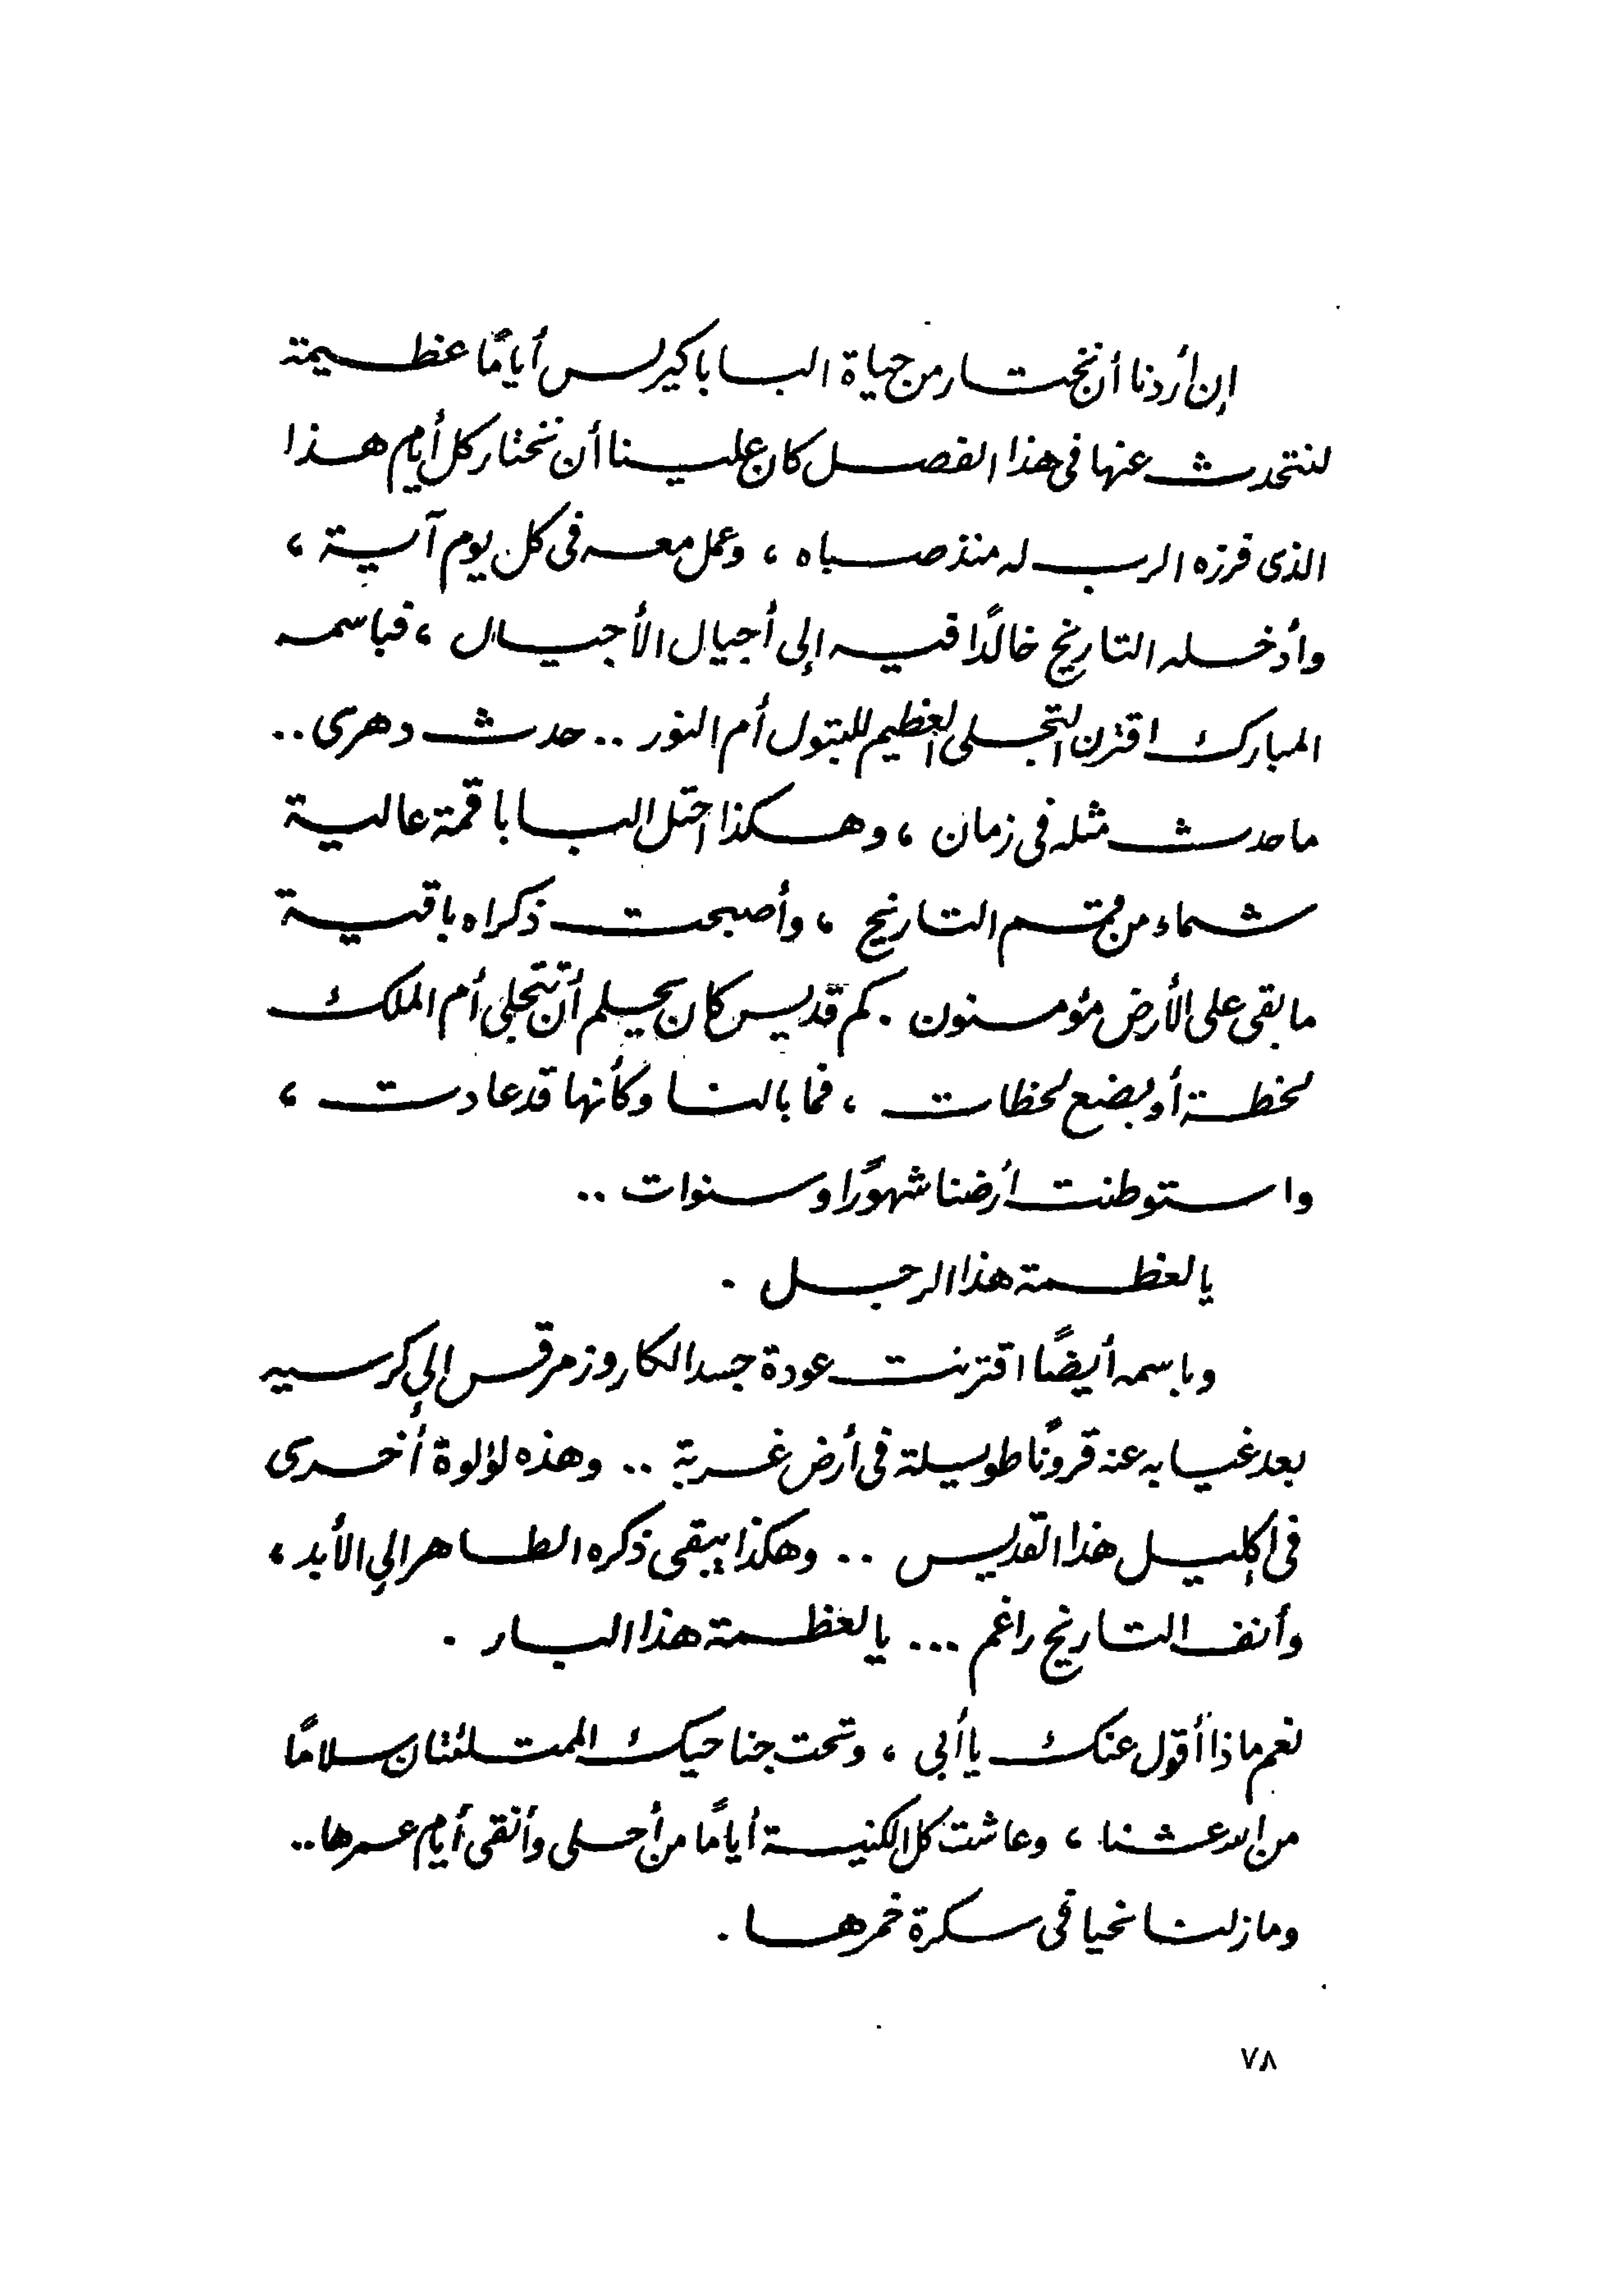 إن أردنا أن نختار من حياة البابا كيرلس أيامًا عظيمة
لنتحدث عنها فى هذا الفصل كان علينا أن نختار كل أيام هذا
الذى فرزه الرب له منذ صباه ، وعمل معه فى كل يوم آية ،
وأدخله التاريخ خالدًا فيه إلى أجيال الأجيال ، فباسمه
المبارك اقترن التجلى العظيم للبتول أم النور .. حدث دهرى ..
ما حدث مثله فى زمان ، وهكذا احتل البابا قمة عالية
شماء من قمم التاريخ ، وأصبحت ذكراه باقية
ما بقى على الأرض مؤمنون . كم قديس كان يحلم أن تتجلى أم الملك
لحظة أو بضع لحظات ، فما بالنا وكأنها قد عادت ،
واستوطنت أرضنا شهورًا وسنوات ..
يا لعظمة هذا الرجل .
وباسمه أيضًا اقترنت عودة جسد الكاروز مرقس إلى كرسيه
بعد غيابه عنه قرونًا طويلة فى أرض غريبة .. وهذه لؤلوة أخرى
فى إكليل هذا القديس .. وهكذا يبقى ذكره الطاهر إلى الأبد ،
وأنف التاريخ راغم ... يا لعظمة هذا البار .
نعم ماذا أقول عنك يا أبى ، وتحت جناحيك الممتلئتان سلامًا
من الله عشنا ، وعاشت كل الكنيسة أيامًا من أحلى وأنقى أيام عمرها ..
وما زلنا نحيا فى سكرة خمرها .
٧٨